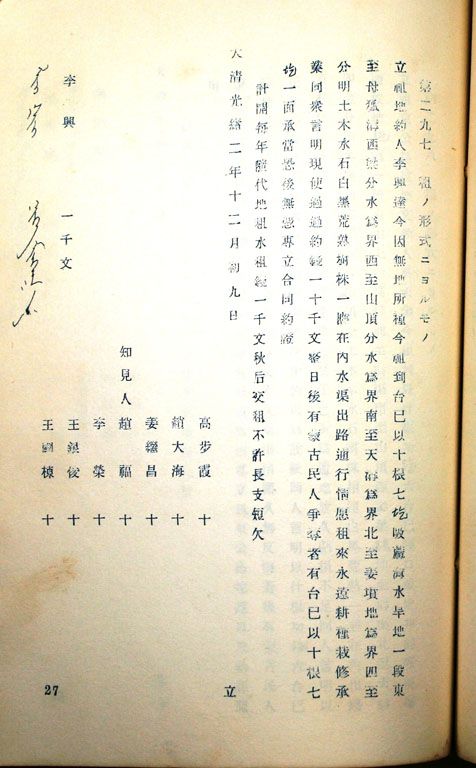 第二九七 租ノ形式ニヨルモノ
立租地約人李興達今因無地所種今租到台巳以十根七圪嘴蘆溝水旱地一段東
至母孤溝西墚分水為界西至山頂分水為界南至天溝為界北至姜墳地為界四至
分明土木水石白墨荒熟樹株一應在內水渠出路通行情愿租來永遠耕種栽修承
業同衆言明現使過過約錢一十千文整日後有蒙古民人爭奪者有台巳以十根七
圪一面承當恐後無憑專立合同約證
計開每年隨代地租水租錢一千文秋后交租不許長支短欠
大清光緒二年十二月初九日 立
高步霞 十
趙大海 十
姜繼昌 十
知見人 趙福 十
李榮 十
王銀俊 十
王國棟 十
李興 一千文
27